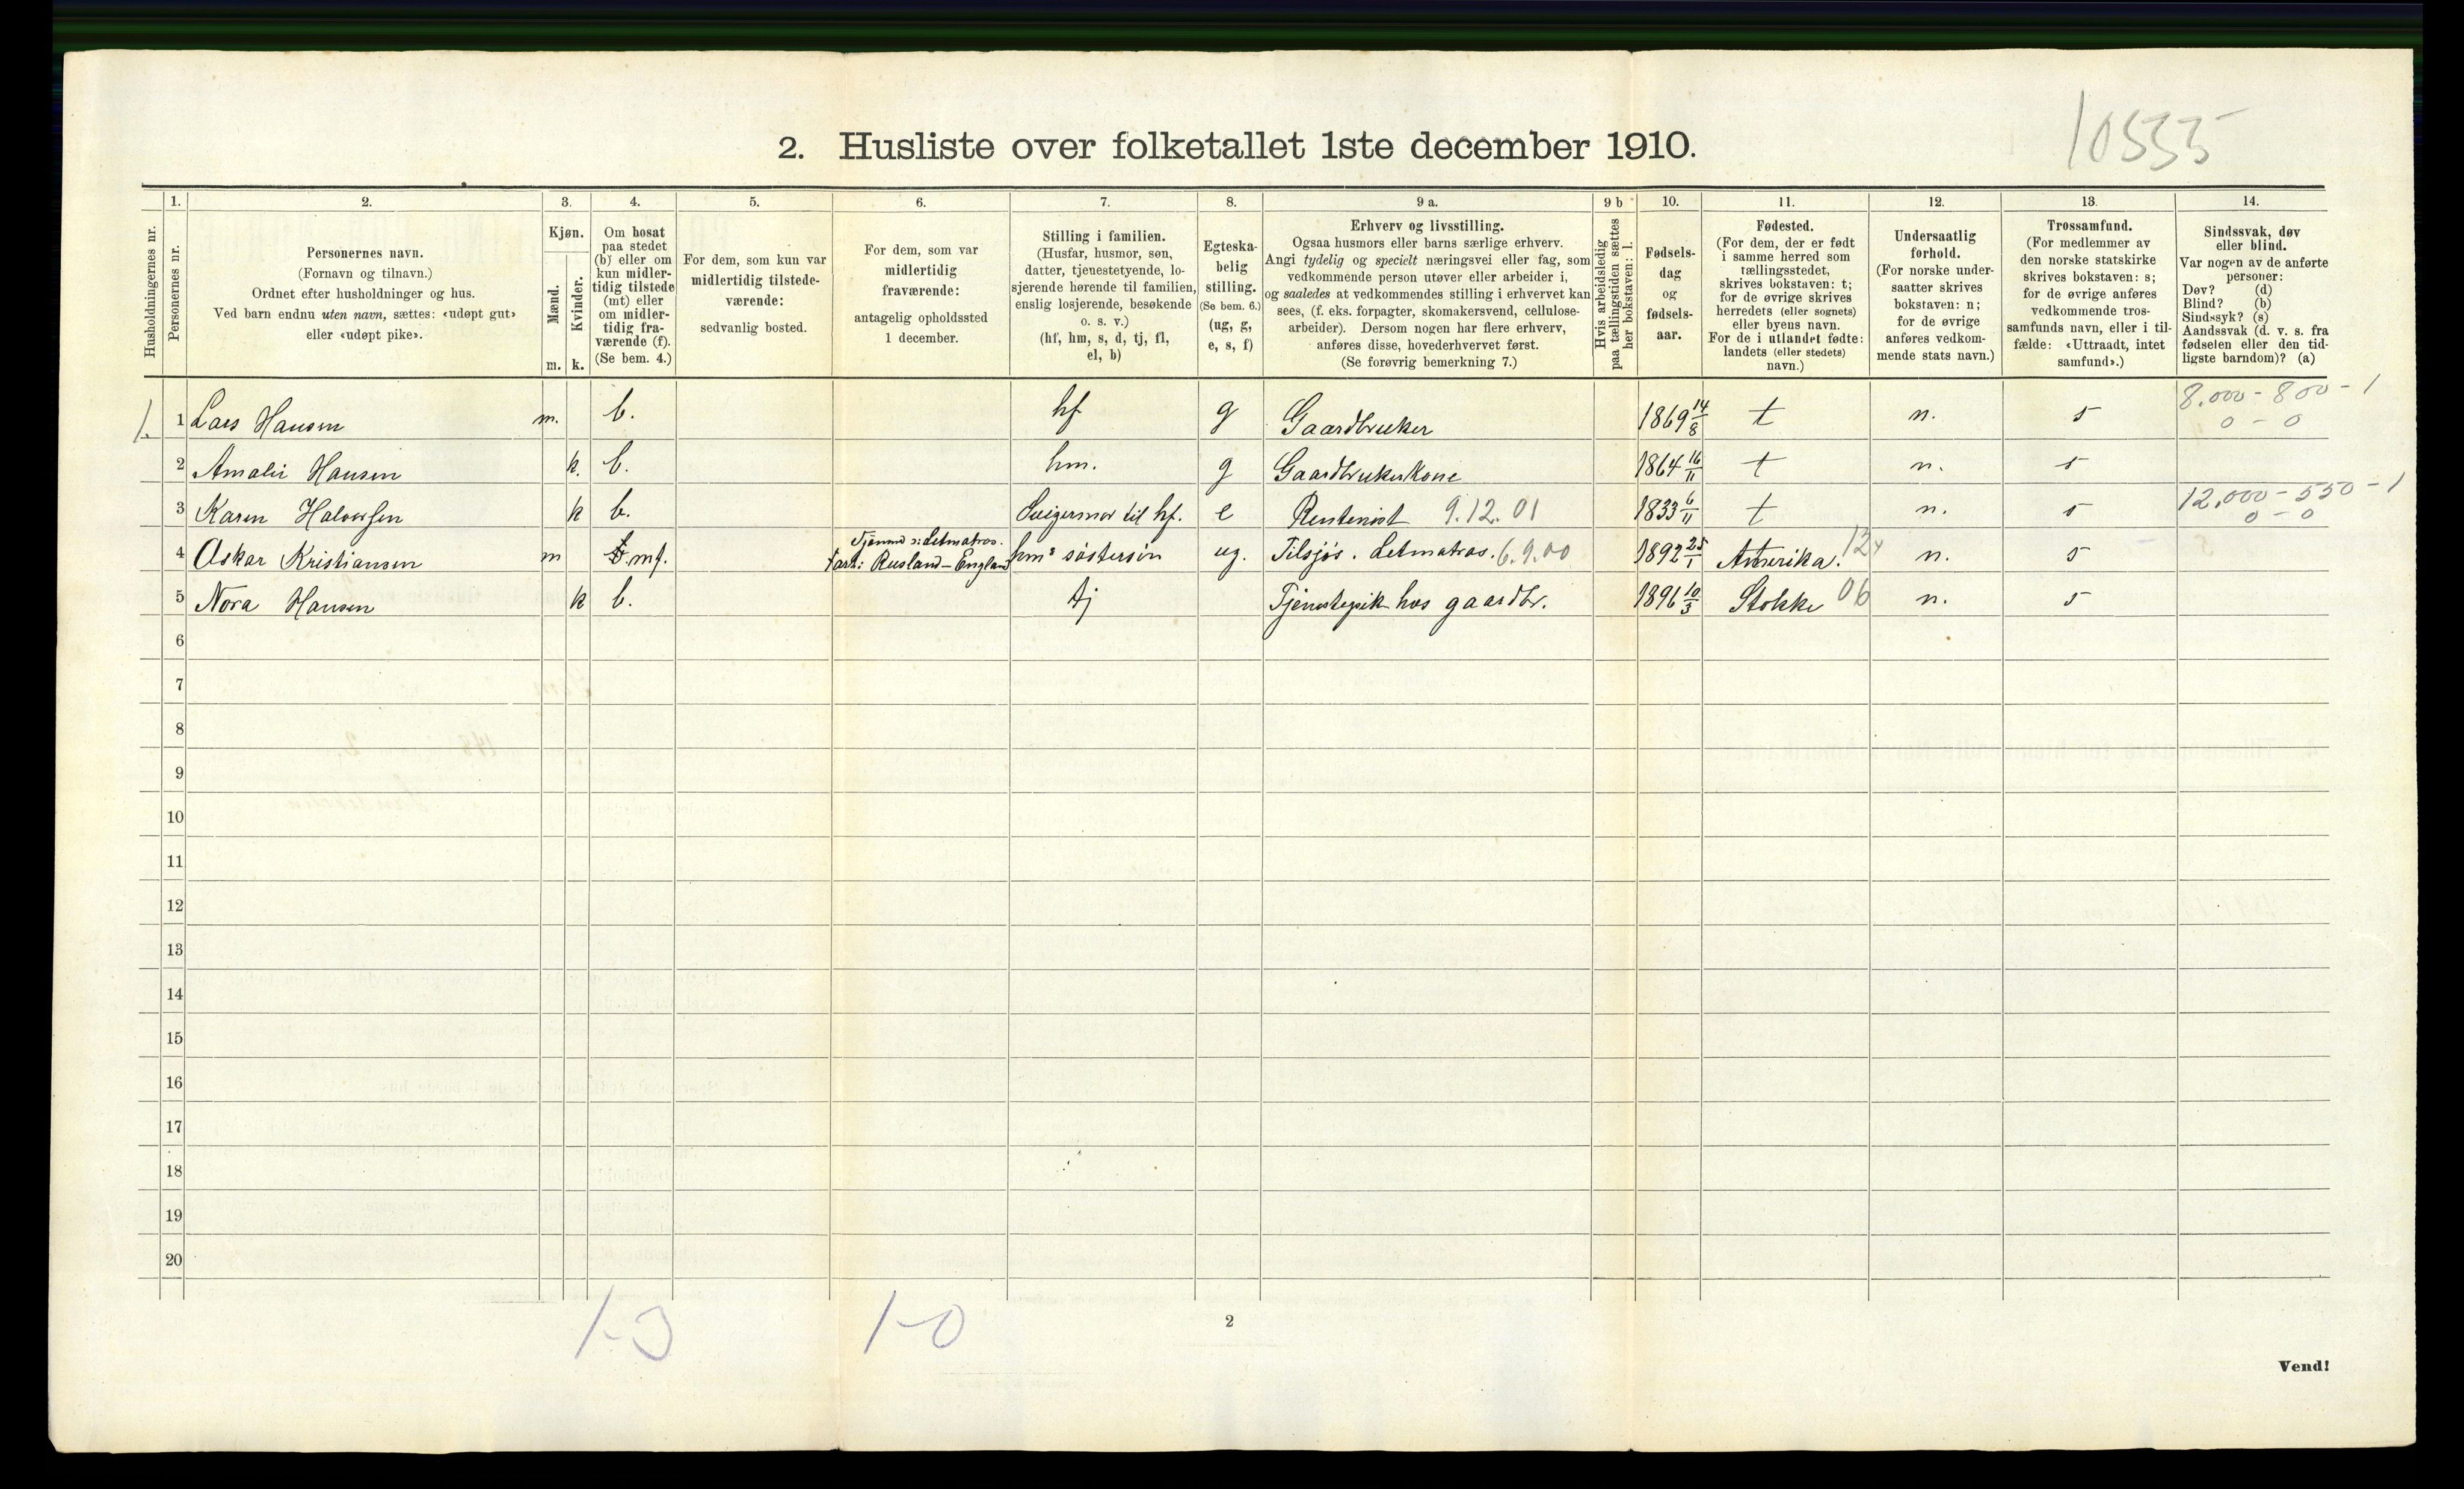 10535
2. Husliste over folketallet 1ste december 1910.
Husholdningernes nr.
1.
Personernes nr.
2.
Personernes navn.
(Fornavn og tilnavn.)
Ordnet efter husholdninger og hus.
Ved barn endnu uten navn, sættes: «udøpt gut»
eller «udøpt pike».
3.
Kjøn.
Mænd.
Kvinder.
m. k.
4.
Om bosat
paa stedet
(b) eller om
kun midler-
tidig tilstede
(mt) eller
om midler-
tidig fra-
værende (f).
(Se bem. 4.)
5.
For dem, som kun var
midlertidig tilstede-
værende:
sedvanlig bosted.
6.
For dem, som var
midlertidig
fraværende:
antagelig opholdssted
1 december.
7.
Stilling i familien.
(Husfar, husmor, søn,
datter, tjenestetyende, lo-
sjerende hørende til familien,
enslig losjerende, besøkende
o. s. v.)
(hf, hm, s, d, tj, fl,
el, b)
8.
Egteska-
belig
stilling.
(Se bem. 6.)
(ug, g,
e, s, f)
9 a.
Erhverv og livsstilling.
Ogsaa husmors eller barns særlige erhverv.
Angi tydelig og specielt næringsvei eller fag, som
vedkommende person utøver eller arbeider i,
og saaledes at vedkommendes stilling i erhvervet kan
sees, (f. eks. forpagter, skomakersvend, cellulose-
arbeider). Dersom nogen har flere erhverv,
anføres disse, hovederhvervet først.
(Se forøvrig bemerkning 7.)
9 b
Hvis arbeidsledig
paa tællingstiden sættes
her bokstaven: l.
10.
Fødsels-
dag
og
fødsels-
aar.
11.
Fødested.
(For dem, der er født
i samme herred som
tællingsstedet,
skrives bokstaven: t;
for de øvrige skrives
herredets (eller sognets)
eller byens navn.
For de i utlandet fødte:
landets (eller stedets)
navn.)
12.
Undersaatlig
forhold.
(For norske under-
saatter skrives
bokstaven: n;
for de øvrige
anføres vedkom-
mende stats navn.)
13.
Trossamfund.
(For medlemmer av
den norske statskirke
skrives bokstaven: s;
for de øvrige anføres
vedkommende tros-
samfunds navn, eller i til-
fælde: «Uttraadt, intet
samfund».)
14.
Sindssvak, døv
eller blind.
Var nogen av de anførte
personer:
Døv? (d)
Blind? (b)
Sindssyk? (s)
Aandssvak (d. v. s. fra
fødselen eller den tid-
ligste barndom)? (a)
1. 1 Lars Hansen m. b. hf g Gaardbruker 1869 14/8 t n. s 8.000 - 800 - 1
0 - 0
2 Amalie Hansen k. b. hm. g Gaardbrukerkone 1864 16/11 t n. s
3 Karen Halvorsen k b. Svigermor til hf. e Rentenist 9.12.01 1833 6/11 t n. s 12,000 - 550 - 1
0 - 0
4 Oskar Kristiansen m mf. Fart: Rusland - England hms søstersøn ug. Tilsjøs. Letmatros. 6.9.00 1892 25/1 Amerika. 124 n. s
5 Nora Hansen k b. tj Tjenestepik hos gaardbr. 1896 10/3 Stokke 06 n. s
6
7
8
9
10
11
12
13
14
15
16
17
18
19
20
1-3 1-0
2
Vend!